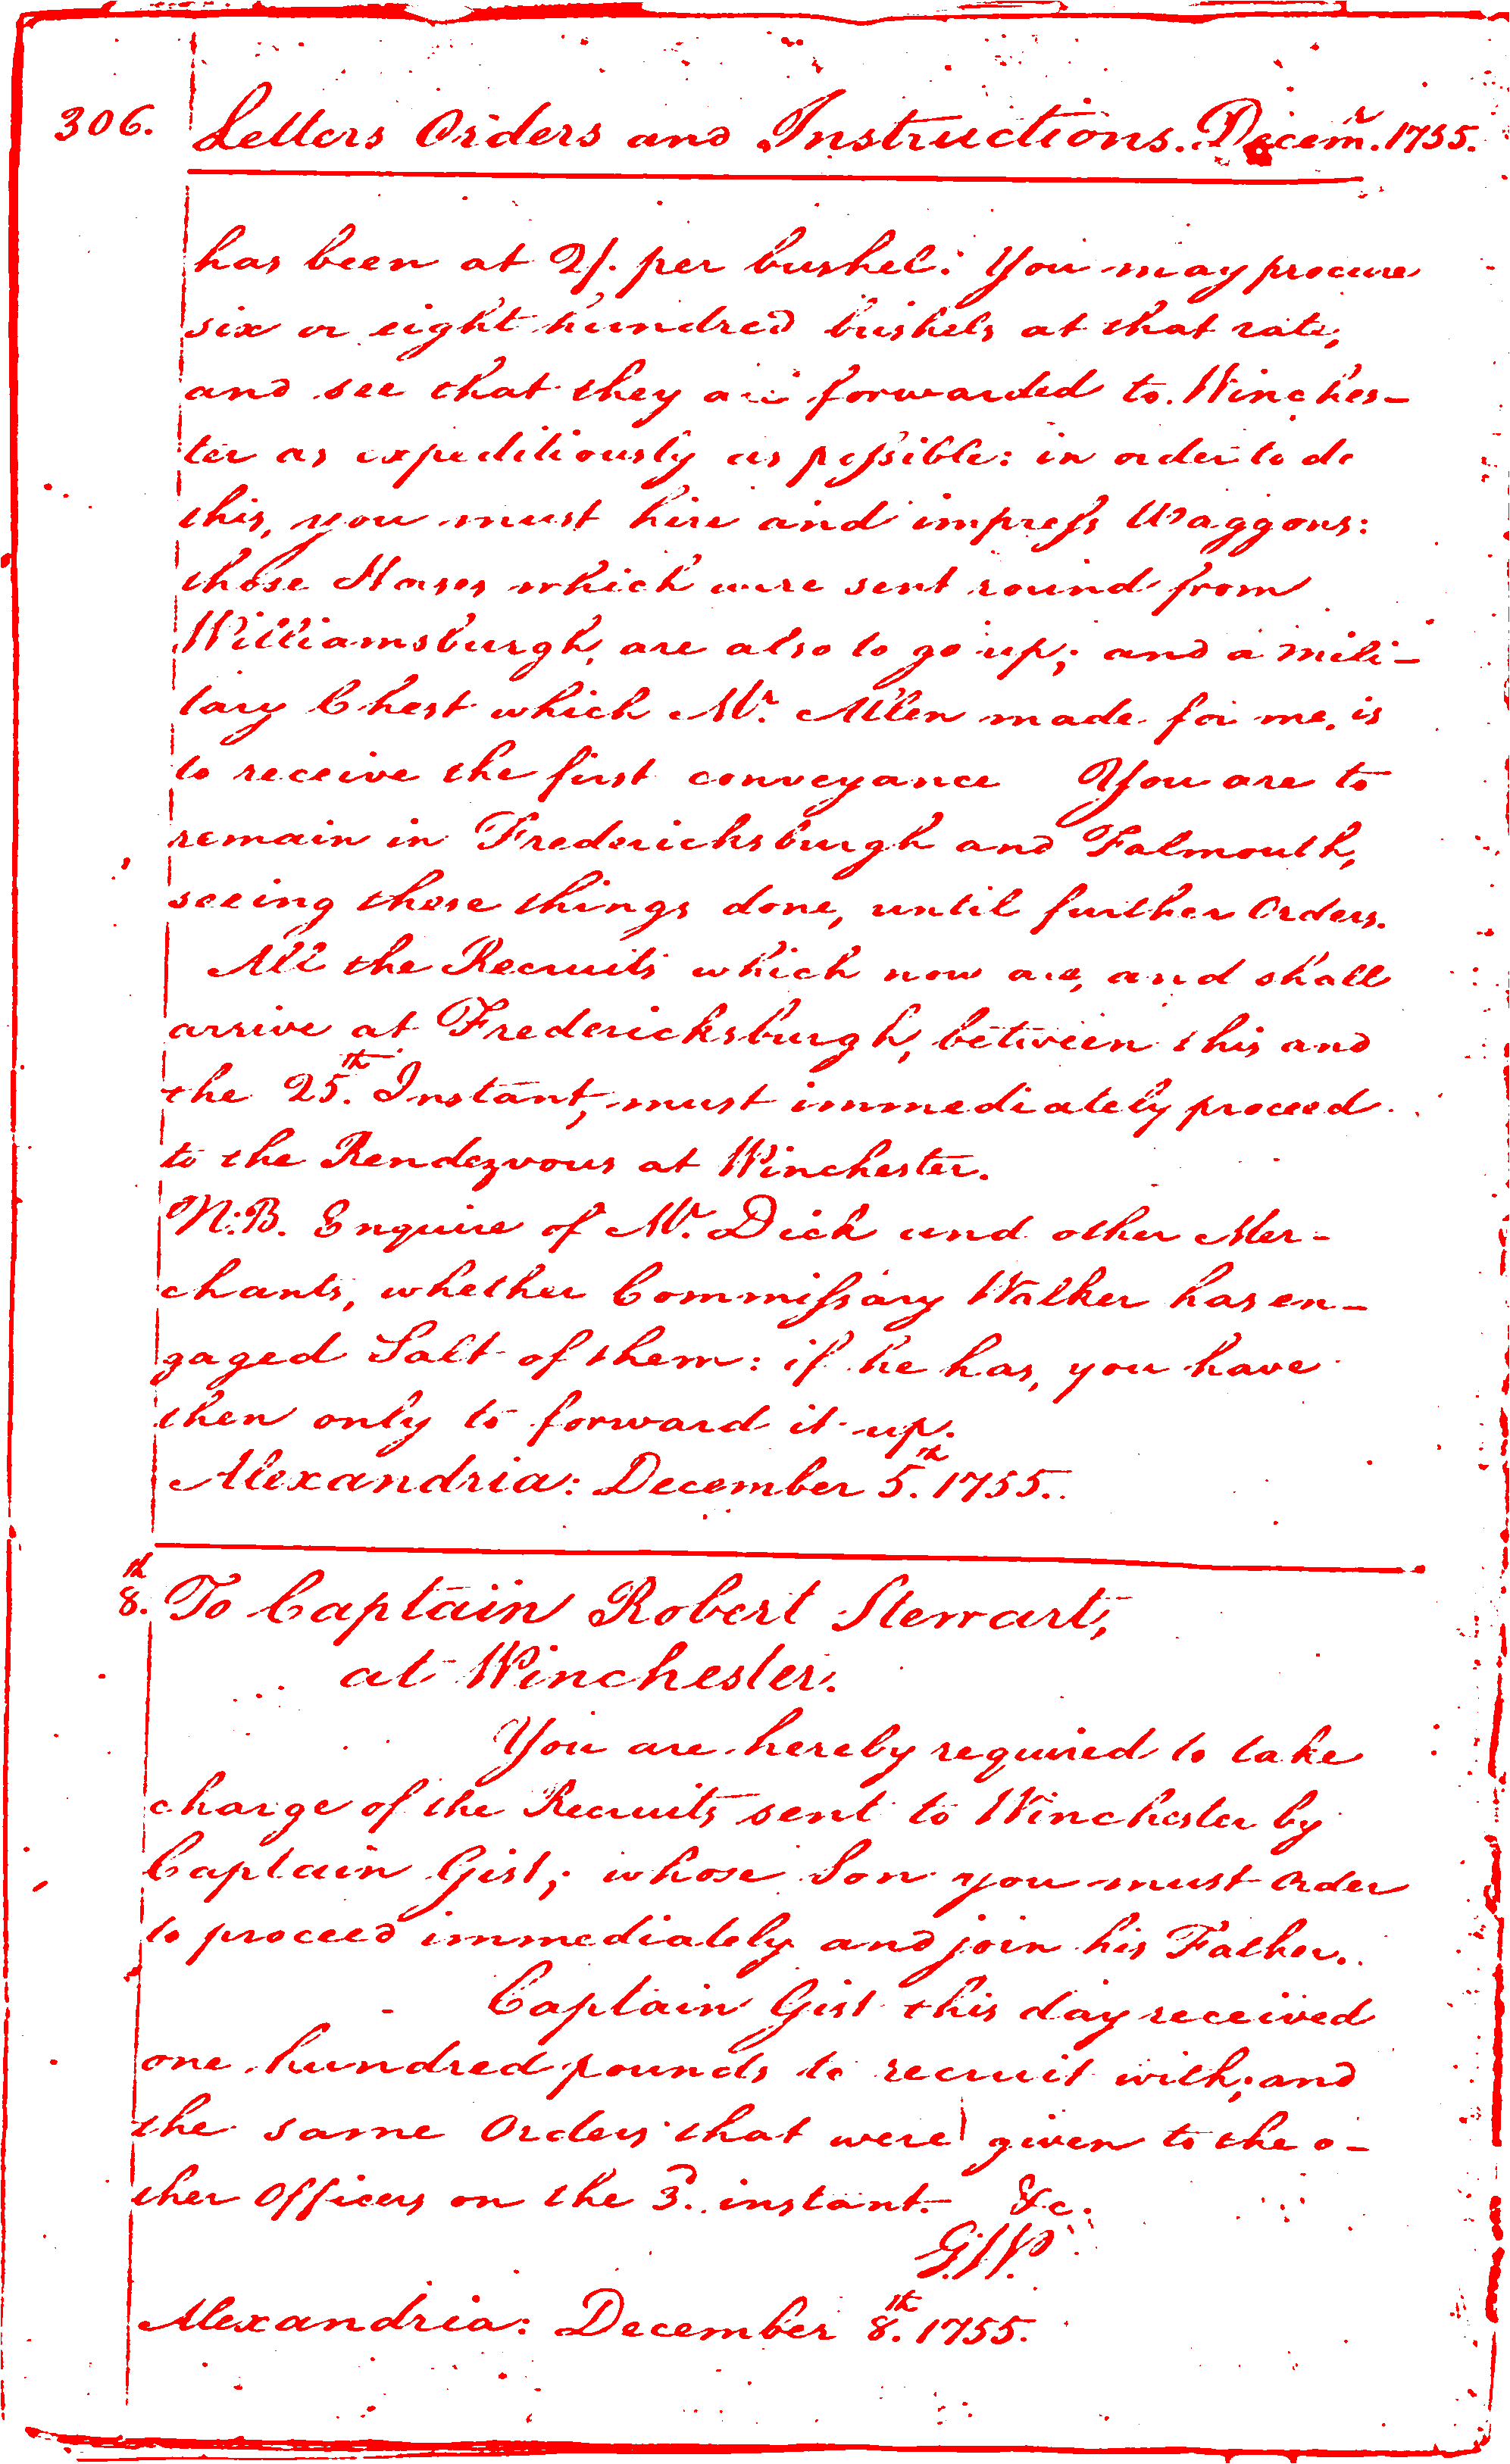 306. Letters Orders and Instructions. Decem.r 1755.
has been at 2/. per bushel: You may procure
six or eight hundred bushels at that rate,
and see that they are forwarded to Winches-
ter as expeditiously as possible: in order to do
this, you must hire and impress Waggons:
those Horses which were sent round from
Williamsburgh, are also to go up; and a mili-
tary Chest which Mr. Allen made for me, is
to receive the first conveyance You are to
remain in Fredericksburgh and Falmouth,
seeing these things done, until further Orders.
All the Recruits which now are, and shall
arrive at Fredericksburgh, between this and
the 25.th Instant, must immediately proceed
to the Rendezvous at Winchester.
N:B. Enquire of Mr. Dick and other Mer-
chants, whether Commissary Walker has en-
gaged Salt of them: if he has, you have
then only to forward it up.
Alexandria: December 5.th 1755.
8.th To Captain Robert Stewart,
at Winchester.
You are hereby required to take
charge of the Recruits sent to Winchester by
Captain Gist; whose Son you must order
to proceed immediately and join his Father.
Captain Gist this day received
one hundred pounds to recruit with; and
the same Orders that were given to the o-
ther Officers on the 3.d instant. &c.
G:W.
Alexandria: December 8.th 1755.